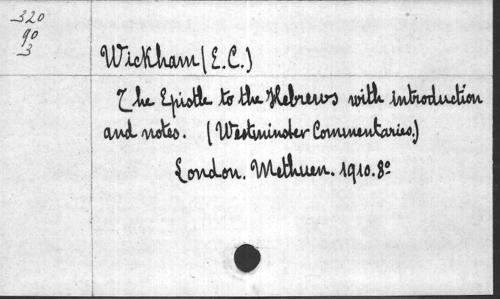 320
90
3
Wickham (E.C.)
The Epistle to the Hebrews with introduction
and notes. (Westminster Commentaries.)
London. Methuen. 1910. 8º